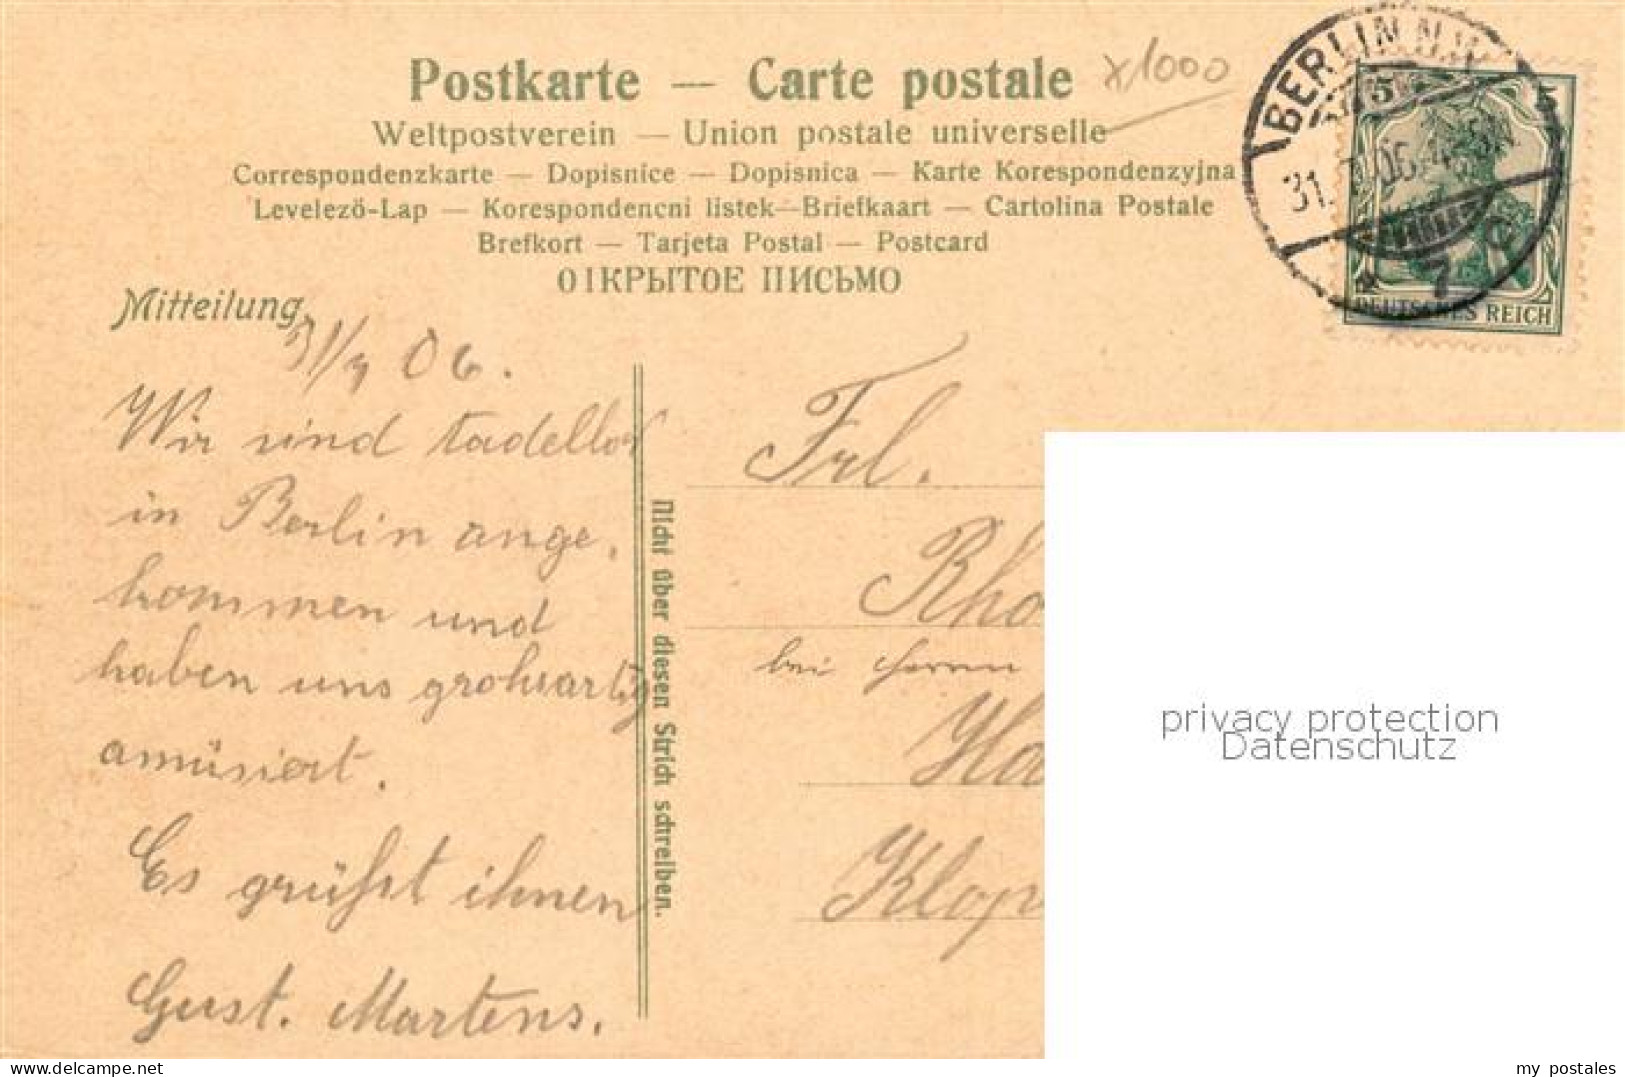 Postkarte — Carte postale
x1000
Weltpostverein — Union postale universelle
Correspondenzkarte — Dopisnice — Dopisnica — Karte Korespondenzyjna
Levelezö-Lap — Korespondencni listek—Briefkaart — Cartolina Postale
Brefkort — Tarjeta Postal — Postcard
ОТКРЫТОЕ ПИСЬМО
BERLIN N.W.
31.
7
5
5
DEUTSCHES REICH
Mitteilung
31/7 06.
Wir sind tadellos
in Berlin ange,
kommen und
haben uns großartig
amüsiert.
Es grüßt ihnen
Gust. Martens.
Nicht über diesen Strich schreiben.
Frl.
Rho
bei Herrn
Ha
Klop
privacy protection
Datenschutz
my postales